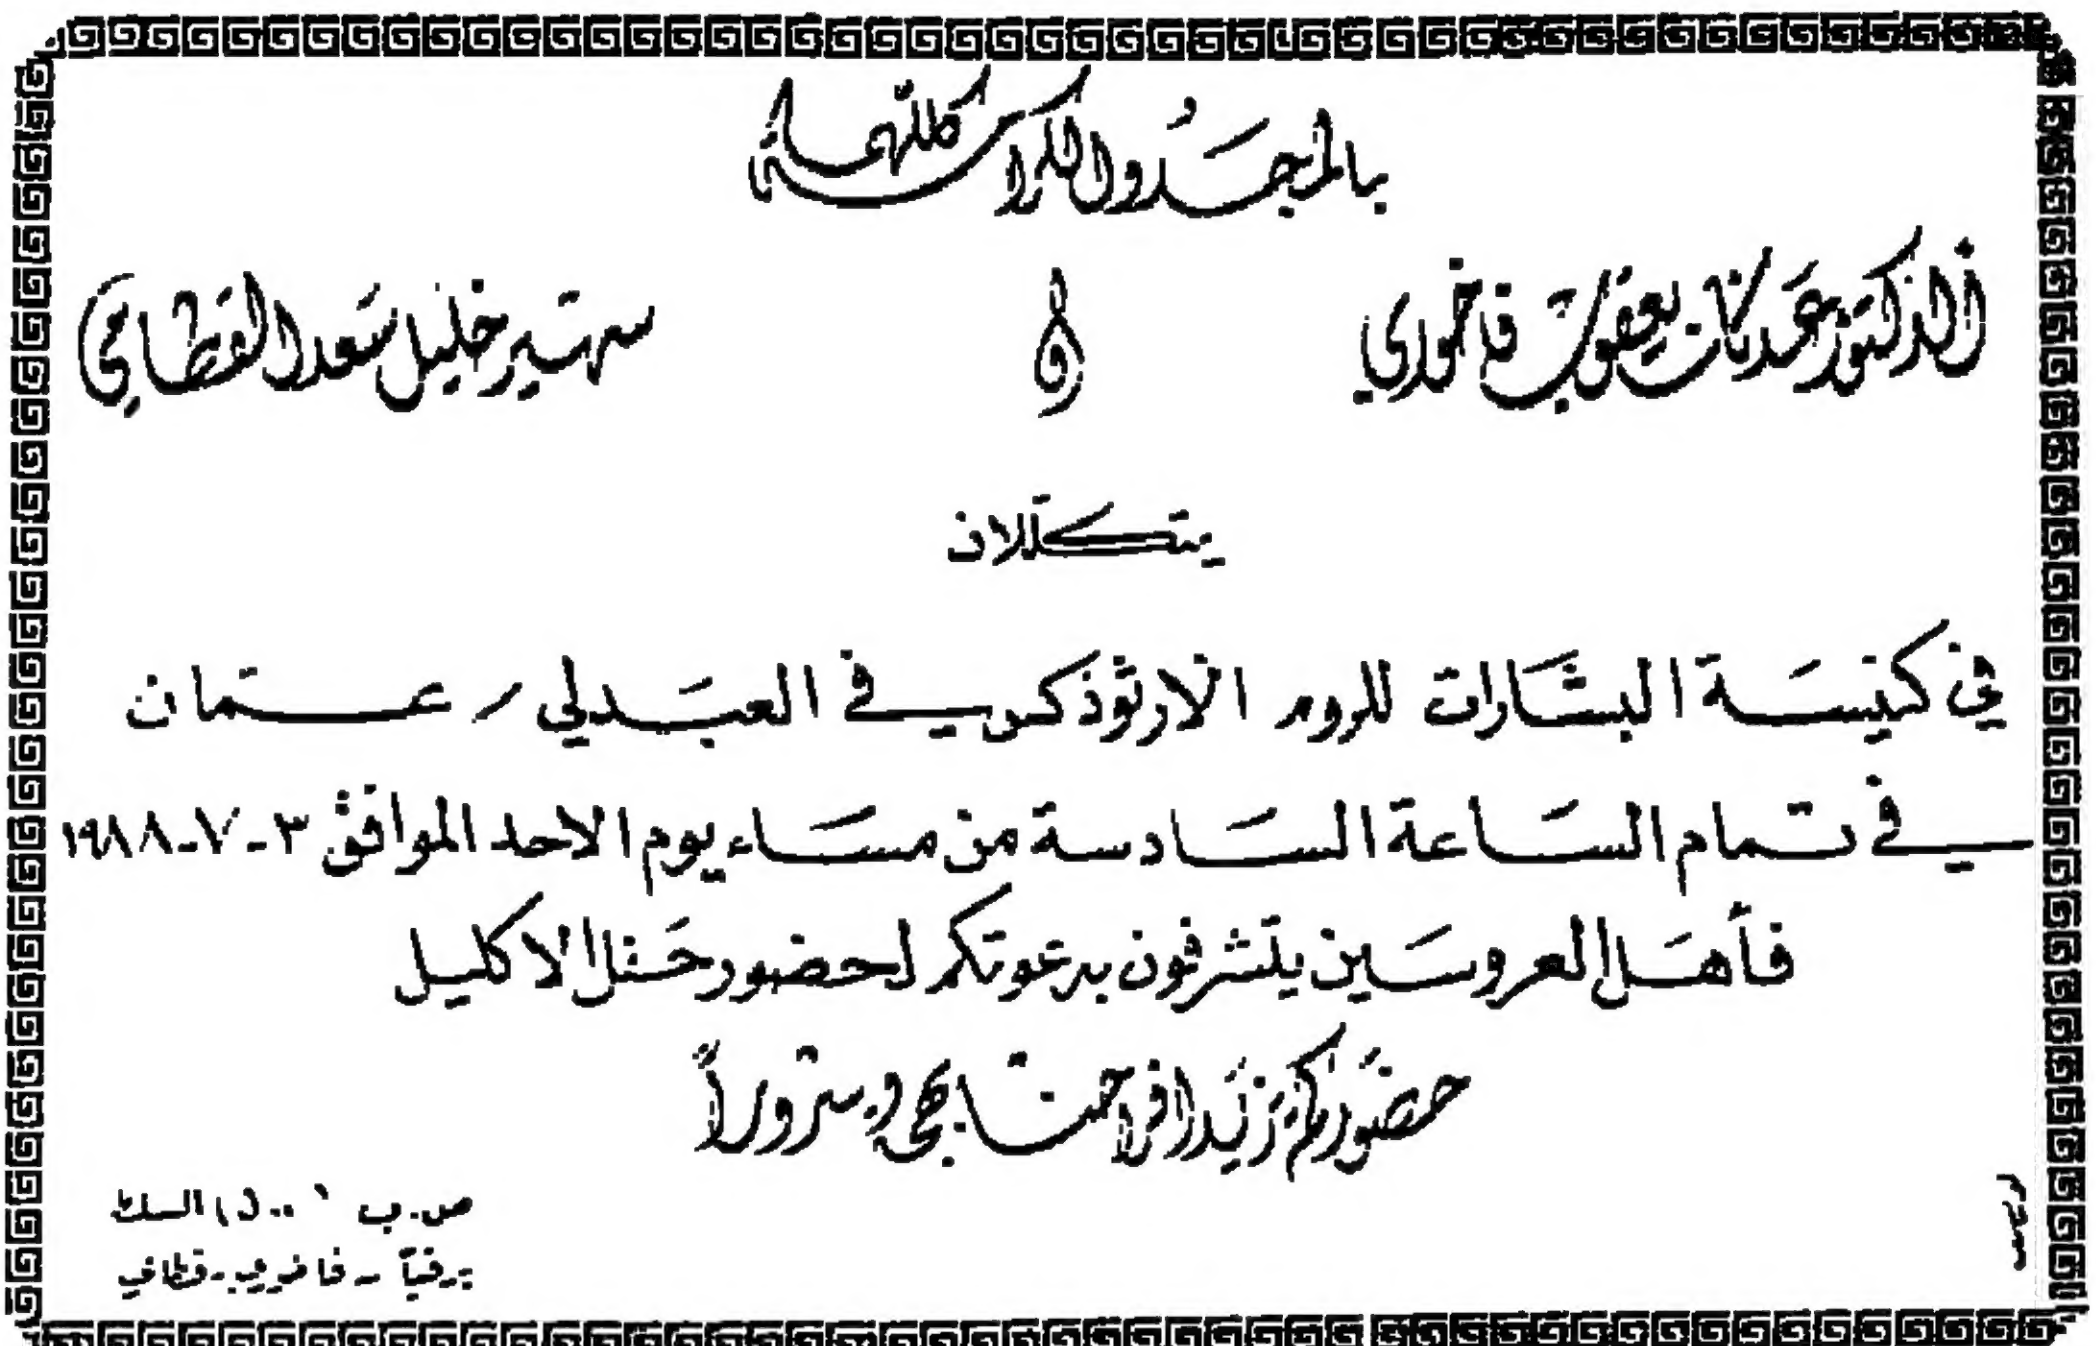 بالمجد والكرامة كللهما
الدكتور عدنان يعقوب فاخوري و سهير خليل سعد القطامي
يتكللان
في كنيسة البشارات للروم الارثوذكس في العبدلي - عمان
في تمام الساعة السادسة من مساء يوم الاحد الموافق ٣-٧-١٩٨٨
فأهل العروسين يتشرفون بدعوتكم لحضور حفل الاكليل
حضوركم يزيد افراحنا بهجة وسروراً
ص.ب
برقياً - فاخوري - قطامي